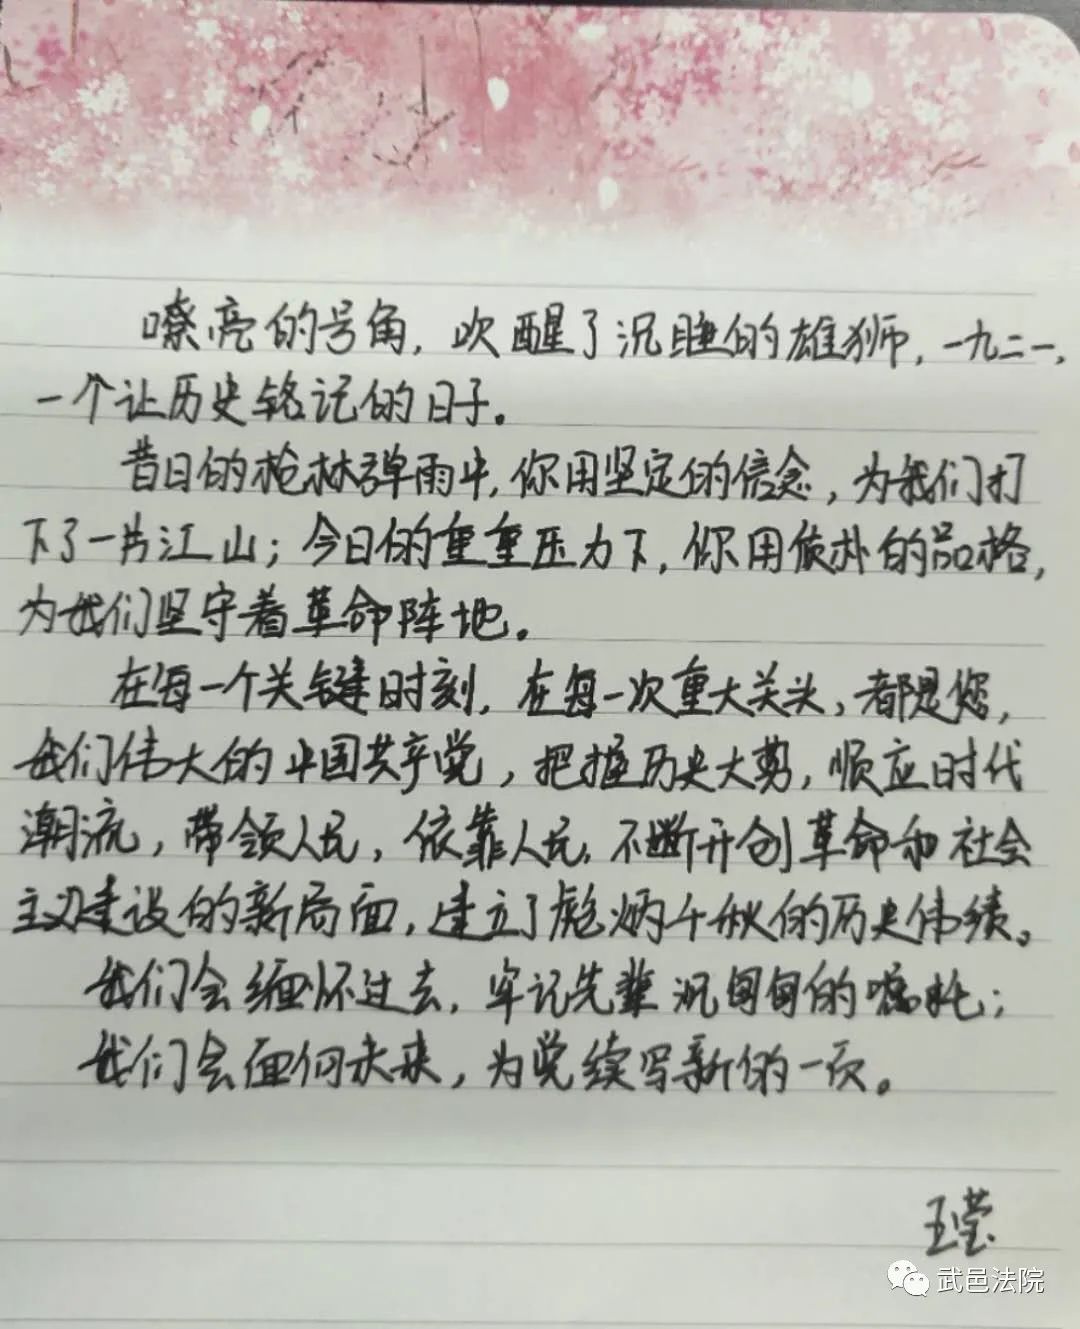 嘹亮的号角，吹醒了沉睡的雄狮，一九二一，
一个让历史铭记的日子。
昔日的枪林弹雨中，你用坚定的信念，为我们打
下了一片江山；今日的重重压力下，你用质朴的品格，
为我们坚守着革命阵地。
在每一个关键时刻，在每一次重大关头，都是您，
我们伟大的中国共产党，把握历史大势，顺应时代
潮流，带领人民，依靠人民，不断开创革命和社会
主义建设的新局面，建立了彪炳千秋的历史伟绩。
我们会缅怀过去，牢记先辈沉甸甸的嘱托；
我们会面向未来，为党续写新的一页。
王莹
武邑法院